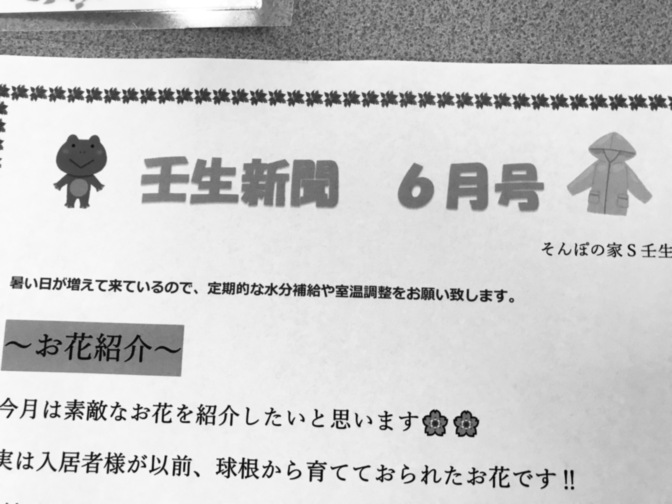 壬生新聞　6月号
そんぽの家S壬生
暑い日が増えて来ているので、定期的な水分補給や室温調整をお願い致します。
～お花紹介～
今月は素敵なお花を紹介したいと思います🌸🌸
実は入居者様が以前、球根から育てておられたお花です!!